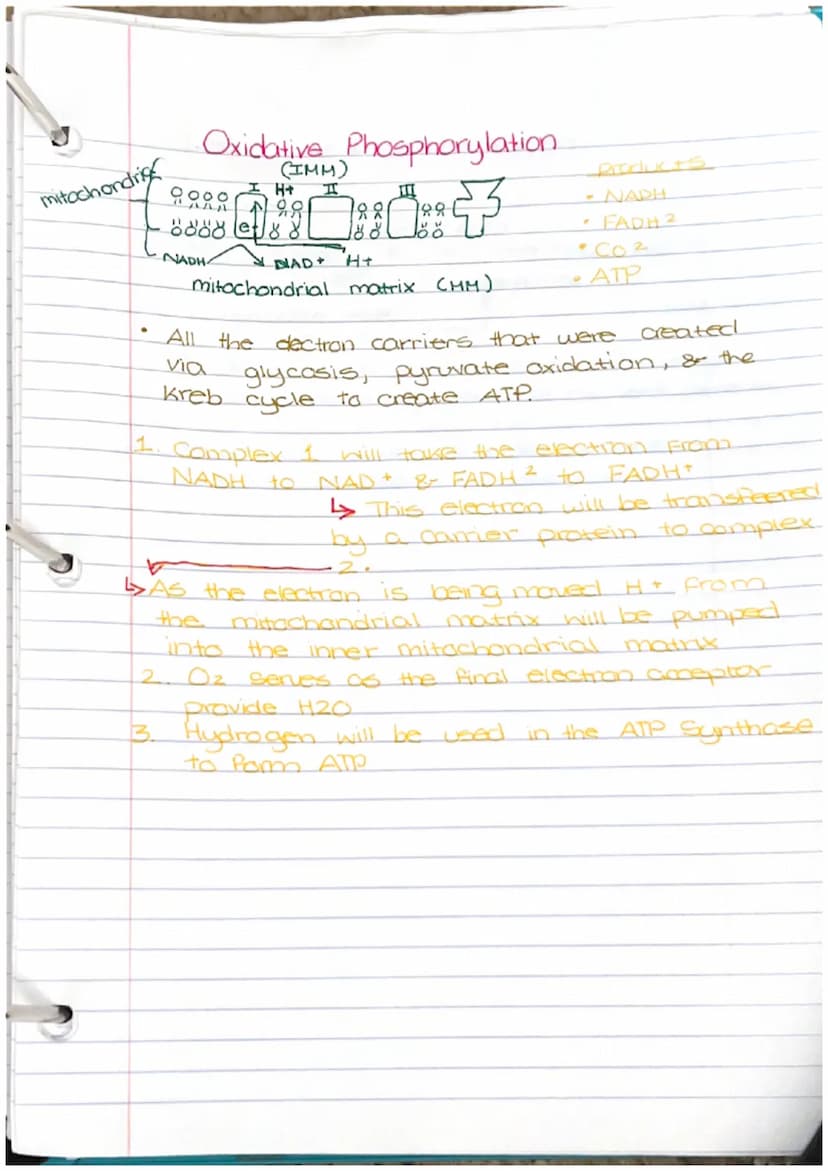 Oxidative Phosphorylation
(IMM)
mitochondria
I H+ II III
e-
NADH NAD+ H+
mitochondrial matrix (MM)
Products
• NADH
• FADH2
• CO2
• ATP
• All the electron carriers that were created
via glycosis, pyruvate oxidation, & the
kreb cycle to create ATP.
1. Complex 1 will take the electron from
NADH to NAD+ & FADH2 to FADH+
↳ This electron will be transfeered
by a carrier protein to complex
2.
↳ As the electron is being moved H+ from
the mitochondrial matrix will be pumped
into the inner mitochondrial matrix
2. O2 serves as the final electron acceptor
provide H2O
3. Hydrogen will be used in the ATP Synthase
to form ATP